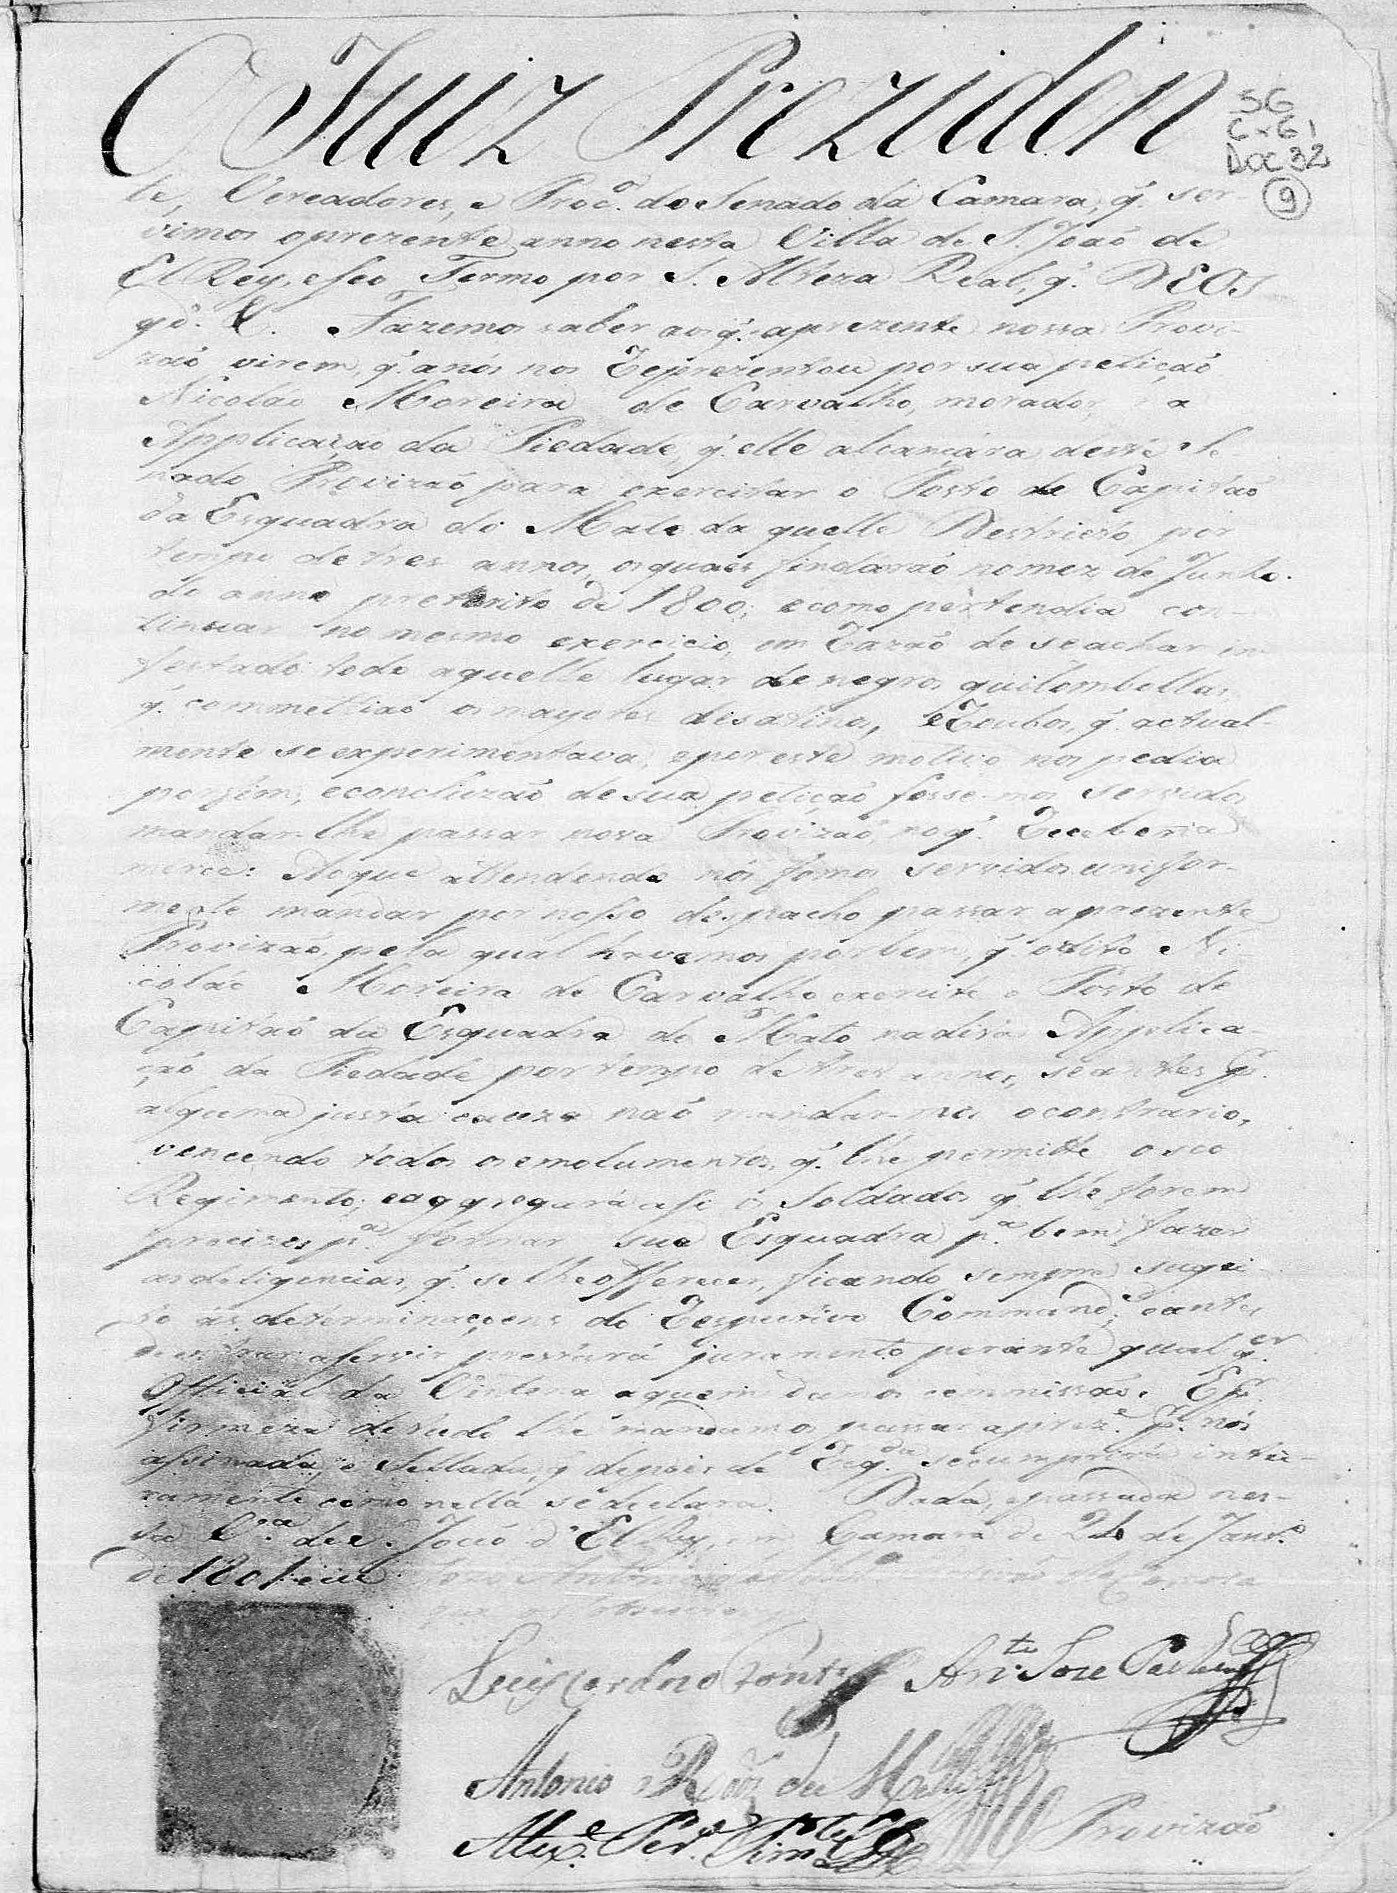 O Juiz Preziden
SG
Cx 61
Doc 32
9
te, Vereadores, e Proc.or do Senado da Camara, q̃ ser-
vimos oprezente anno nesta Villa de S. Joaõ de
El Rey, eseo Termo por S. Alteza Real, q̃. DEOS
gd.e &. Fazemos saber aos q̃. aprezente nossa Provi-
zaõ virem, q̃ anós nos Reprezentou por sua petiçaõ
Nicoláo Moreira de Carvalho, morador a
Applicaçaõ da Piedade, q̃ elle alcançára deste Se-
nado Provizaõ para exercitar o Posto de Capitaõ
da Esquadra do Mato da quelle Destricto por
tempo de tres annos, osquaes findáraõ no mez de Junho
do anno preterito de 1800; ecomo pertendia con-
tinuar no mesmo exercicio, em Razaõ de se achar in-
festado todo aquelle lugar de negros quilombollas,
q̃. commettiaõ os mayores disatinos, eRoubos, q̃ actual-
mente se experimentava, eporeste motivo nos pedia
porfim, econcluzaõ de sua petiçaõ fosse-mos servidos
mandar-lhe passar nova Provizaõ, noq̃. Receberia
merce: Aoque attendendo nós fomos servidos unifor-
mente mandar por nosso despacho passar aprezente
Provizaõ, pela qual havemos por bem, q̃ odito Ni-
coláo Moreira de Carvalho exercite o Posto de
Capitaõ da Esquadra do Mato nadita Applica-
çaõ da Piedade por tempo de tres annos, se antes p.r
alguma justa cauza naõ mandar-mos ocontrario,
vencendo todos os emolumentos, q̃. lhe permitte oseo
Regimento; eaggregará asi os Soldados q̃ lhe forem
precizos p.a formar sua Esquadra p.a bem fazer
as deligencias, q̃. se lhe offerecer, ficando sempre sugei-
to ás determinaçoens do Respectivo Command.e, eantes
de entrar aservir prestará juramento perante qual q.er
Official da Vintena aquem damos commissaõ. E p.r
firmeza de tudo lhe mandamos passar aprez.e p.r nós
assinada, e Sellada, q̃ depois de Reg.da secumprirá intei-
ramente como nella se declara. Dada, epassada nes-
ta V.a de S. Joaõ d'El Rey, em Camara de 24 de Janr.o
de 1801 eu
Antonio Roiz de Mello
Provizaõ